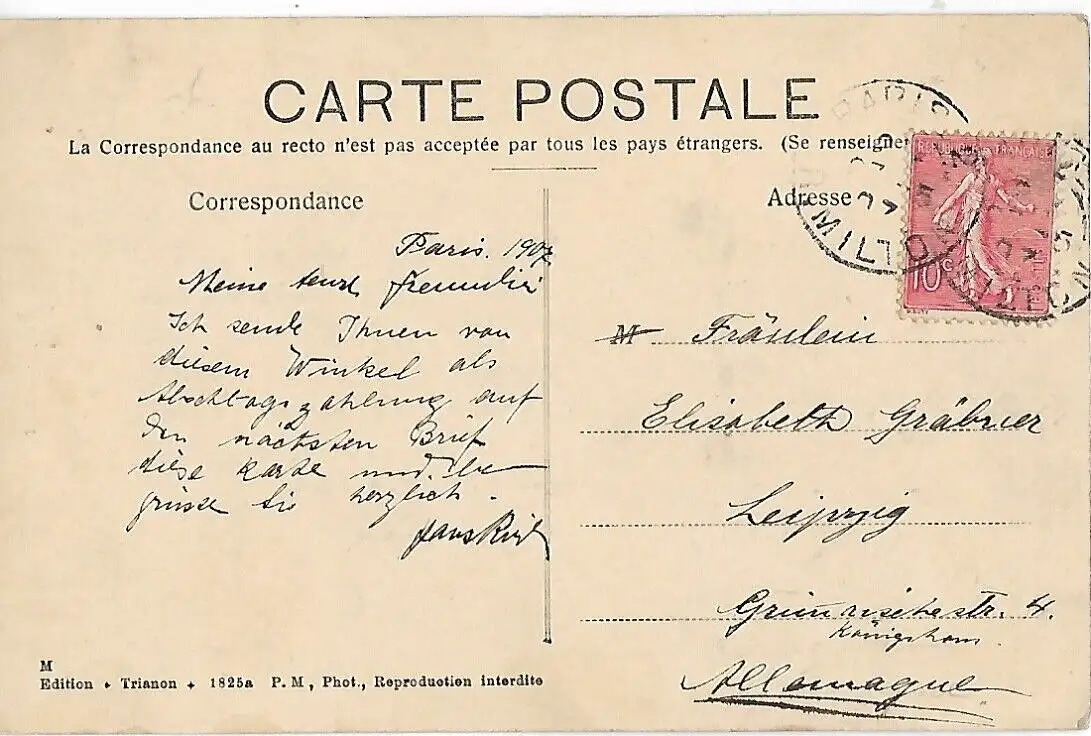 CARTE POSTALE
La Correspondance au recto n'est pas acceptée par tous les pays étrangers. (Se renseigner
Correspondance
Paris. 1907
Meine
Ich sende Ihnen von
diesem Winkel als
Abschlagszahlung auf
den nächsten Brief
diese Karte und be
grüsse Sie herzlich.
Hans
Adresse
PARIS
REPUBLIQUE FRANÇAISE
10c
M Fräulein
Elisabeth Gräbner
Leipzig
Grimmaischestr. 4.
Königshaus.
Allemagne
M
Edition + Trianon + 1825a P. M, Phot., Reproduction interdite